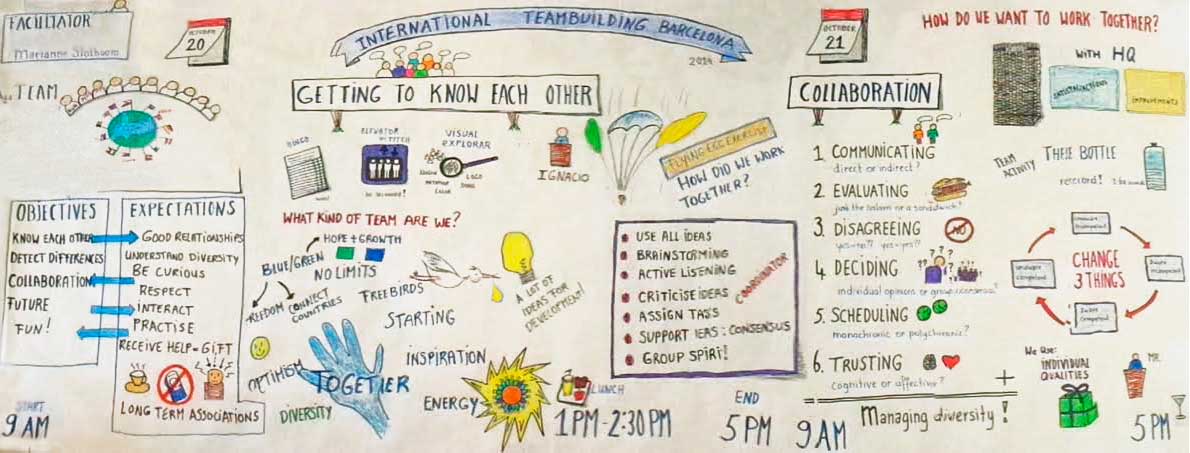 FACILITATOR
TEAM
OCTOBER
20
INTERNATIONAL TEAMBUILDING BARCELONA
2014
GETTING TO KNOW EACH OTHER
ELEVATOR
PITCH
VISUAL
EXPLORAR
LOGO
IGNACIO
FLYING EGG EXERCISE
HOW DID WE WORK
TOGETHER?
OBJECTIVES
KNOW EACH OTHER
DETECT DIFFERENCES
COLLABORATION
FUTURE
FUN!
EXPECTATIONS
GOOD RELATIONSHIPS
UNDERSTAND DIVERSITY
BE CURIOUS
RESPECT
INTERACT
PRACTISE
RECEIVE HELP = GIFT
LONG TERM ASSOCIATIONS
START
9 AM
WHAT KIND OF TEAM ARE WE?
HOPE + GROWTH
BLUE/GREEN
NO LIMITS
FREEDOM
CONNECT
COUNTRIES
FREEBIRDS
STARTING
A LOT OF
IDEAS FOR
DEVELOPMENT!
OPTIMISM
TOGETHER
DIVERSITY
INSPIRATION
ENERGY
USE ALL IDEAS
BRAINSTORMING
ACTIVE LISTENING
CRITICISE IDEAS
ASSIGN TASS
SUPPORT IEAS : CONSENSUS
GROUP SPIRI!
COORDINATOR
LUNCH
1PM-2:30PM
END
5 PM
OCTOBER
21
COLLABORATION
1. COMMUNICATING
direct or indirect?
2. EVALUATING
just the salami or a sandwich?
3. DISAGREEING
yes=no? yes=yes?
NO
4. DECIDING
individual opinions or group consensus?
5. SCHEDULING
monochronic or polychronic?
6. TRUSTING
cognitive or affective?
+
Managing diversity!
9 AM
HOW DO WE WANT TO WORK TOGETHER?
WITH HQ
SATISFACTIONS
IMPROVEMENTS
TEAM
ACTIVITY
THE BOTTLE
record!
CHANGE
3 THINGS
Unaware
incompetent
Aware
incompetent
Aware
competent
Unaware
competent
We are:
INDIVIDUAL
QUALITIES
MR.
5 PM